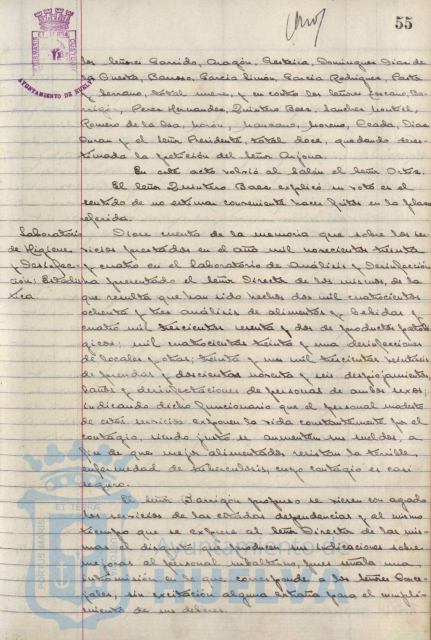 55
los señores Garrido, Aragón, Terteira, Dominguez Diaz de
la Guesta, Barroso, Garcia Limón, Garcia Rodriguez, Ponte
y Serrano, total nueve, y en contra los señores Lozcano, Ba-
rrigón, Perez Hernandez, Quintero Baez, Sanchez
Romero de la Osa, Morón, Manzano, Moreno, Diaz
Duran y el Señor Presidente, total doce, quedando deses-
timada la petición del Señor Anjona.
En este acto volvió al Salón el Señor Ortiz.
El Señor Quintero Baez explicó su voto en el
sentido de no estimar conveniente hacer fiestas en la plaza
referida.
Laboratorio
de Higiene
y Desinfec-
ción: Estadis-
tica.
Diose cuenta de la memoria que sobre los ser-
vicios prestados en el año mil novecientos treinta
y cuatro en el Laboratorio de Análisis y Desinfección
ha presentado el Señor Director de los mismos, de la
que resulta que han sido hechos dos mil cuatrocientos
ochenta y tres análisis de alimentos y bebidas y
cuatro mil trescientos y dos de productos patoló-
gicos; mil cuatrocientos treinta y una desinfecciones
de locales y otras; treinta y un mil trescientos
de prendas y doscientos noventa y seis despiojamientos,
baños y desinfectaciones de personas de ambos sexos;
indicando dicho funcionario que el personal modesto
de estos servicios exponen la vida constantemente por el
contagio, siendo justo se aumenten sus sueldos, a
fin de que mejor alimentados resistan la terrible
enfermedad de tuberculosis, cuyo contagio es casi
seguro.
El Señor Barrigón propuso se viesen con agrado
los servicios de las citadas dependencias y al mismo
tiempo que se exprese al Señor Director de las mis-
mas el disgusto que producen sus indicaciones sobre
mejoras al personal subalterno, pues señala una
intromisión en lo que corresponde a los Señores Conce-
jales, sin excitación alguna extraña para el cumpli-
miento de sus deberes.
AYUNTAMIENTO DE HUELVA
PORTUS MARIS ET TERRAE
Ayuntamiento de
HUELVA